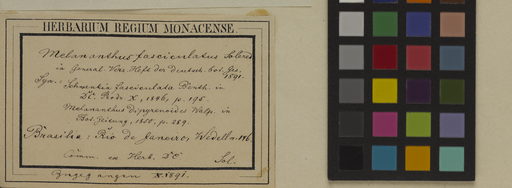 HERBARIUM REGIUM MONACENSE.
Melananthus fasciculatus Solered
in General Vers. Heft der deutsch. bot. Ges.
1891.
Syn.: Schwenkia fasciculata Benth. in
DC. Prodr. X, 1846, p. 195.
Melananthus dipyrenoides Walp. in
Bot. Zeitung, 1850, p. 789.
Brasilia: Rio de Janeiro, Weddell n.
Comm. ex Herb. DC. Sol.
1891.